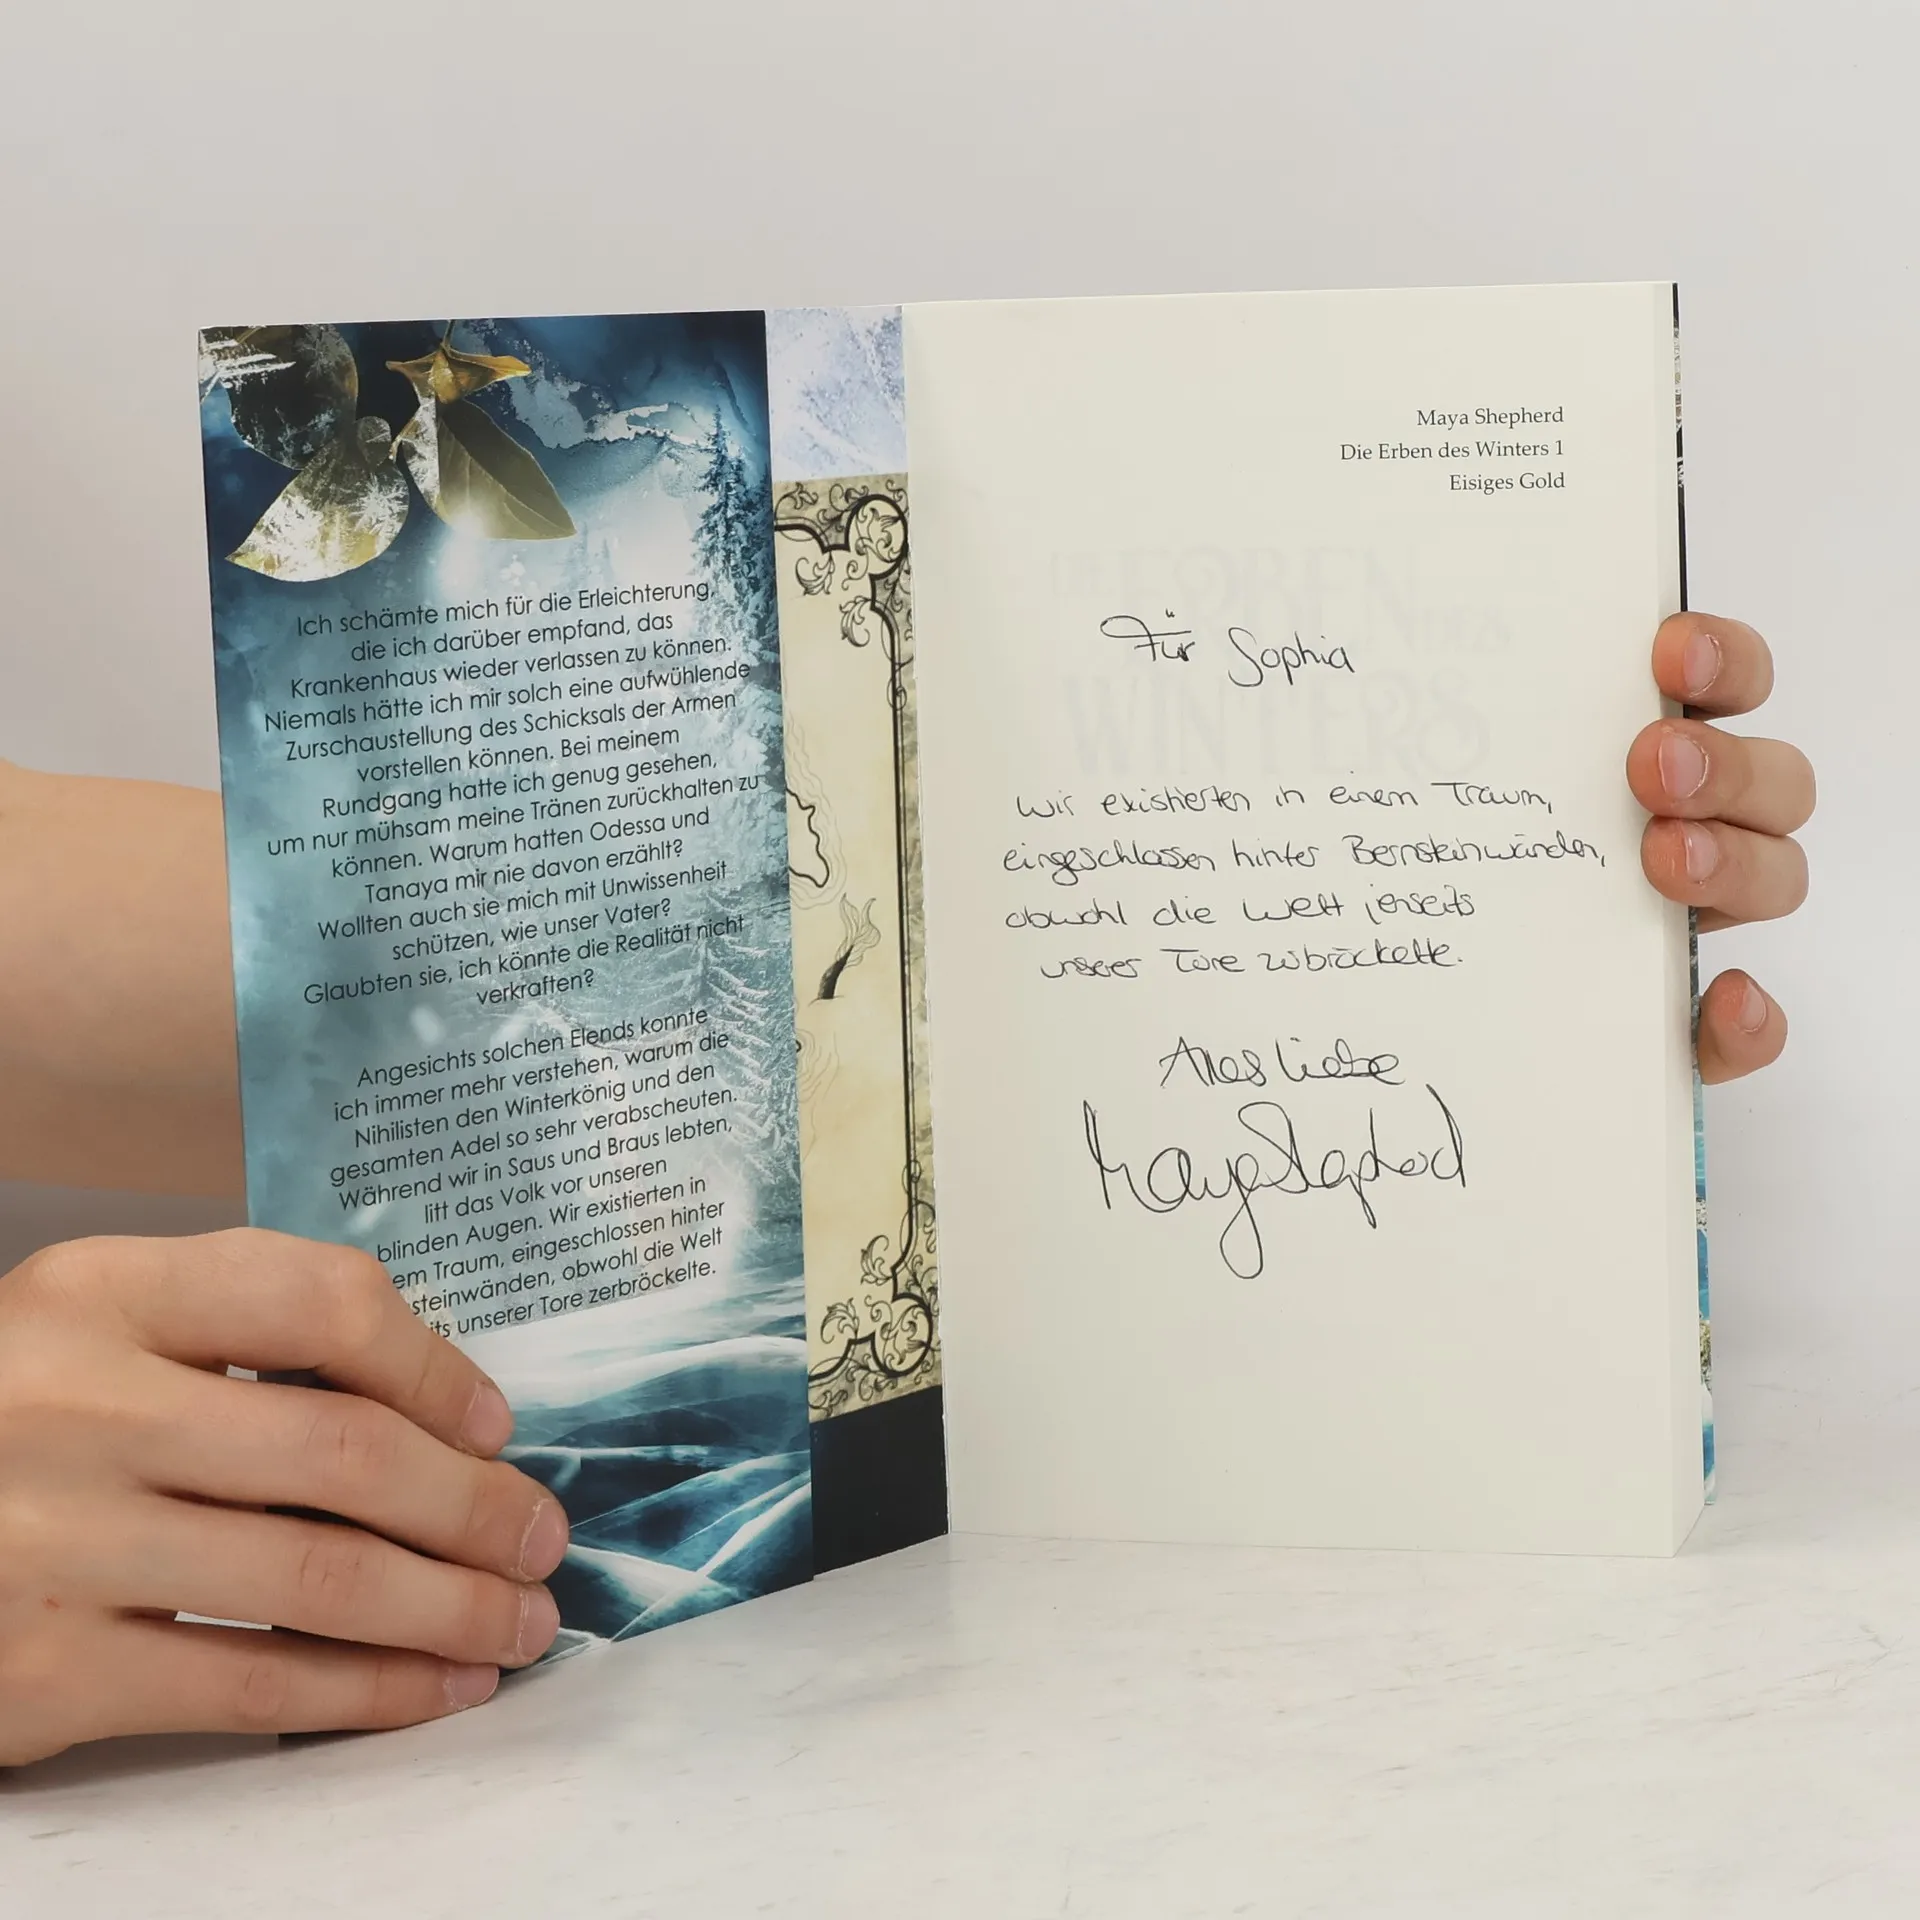 Ich schämte mich für die Erleichterung,
die ich darüber empfand, das
Krankenhaus wieder verlassen zu können.
Niemals hätte ich mir solch eine aufwühlende
Zurschaustellung des Schicksals der Armen
vorstellen können. Bei meinem
Rundgang hatte ich genug gesehen,
um nur mühsam meine Tränen zurückhalten zu
können. Warum hatten Odessa und
Tanaya mir nie davon erzählt?
Wollten auch sie mich mit Unwissenheit
schützen, wie unser Vater?
Glaubten sie, ich könnte die Realität nicht
verkraften?
Angesichts solchen Elends konnte
ich immer mehr verstehen, warum die
Nihilisten den Winterkönig und den
gesamten Adel so sehr verabscheuten.
Während wir in Saus und Braus lebten,
litt das Volk vor unseren
blinden Augen. Wir existierten in
em Traum, eingeschlossen hinter
steinwänden, obwohl die Welt
its unserer Tore zerbröckelte.
Maya Shepherd
Die Erben des Winters 1
Eisiges Gold
Für Sophia
Wir existierten in einem Traum,
eingeschlossen hinter Bernsteinwänden,
obwohl die Welt jenseits
unserer Tore zerbröckelte.
Alles Liebe
Maya Shepherd